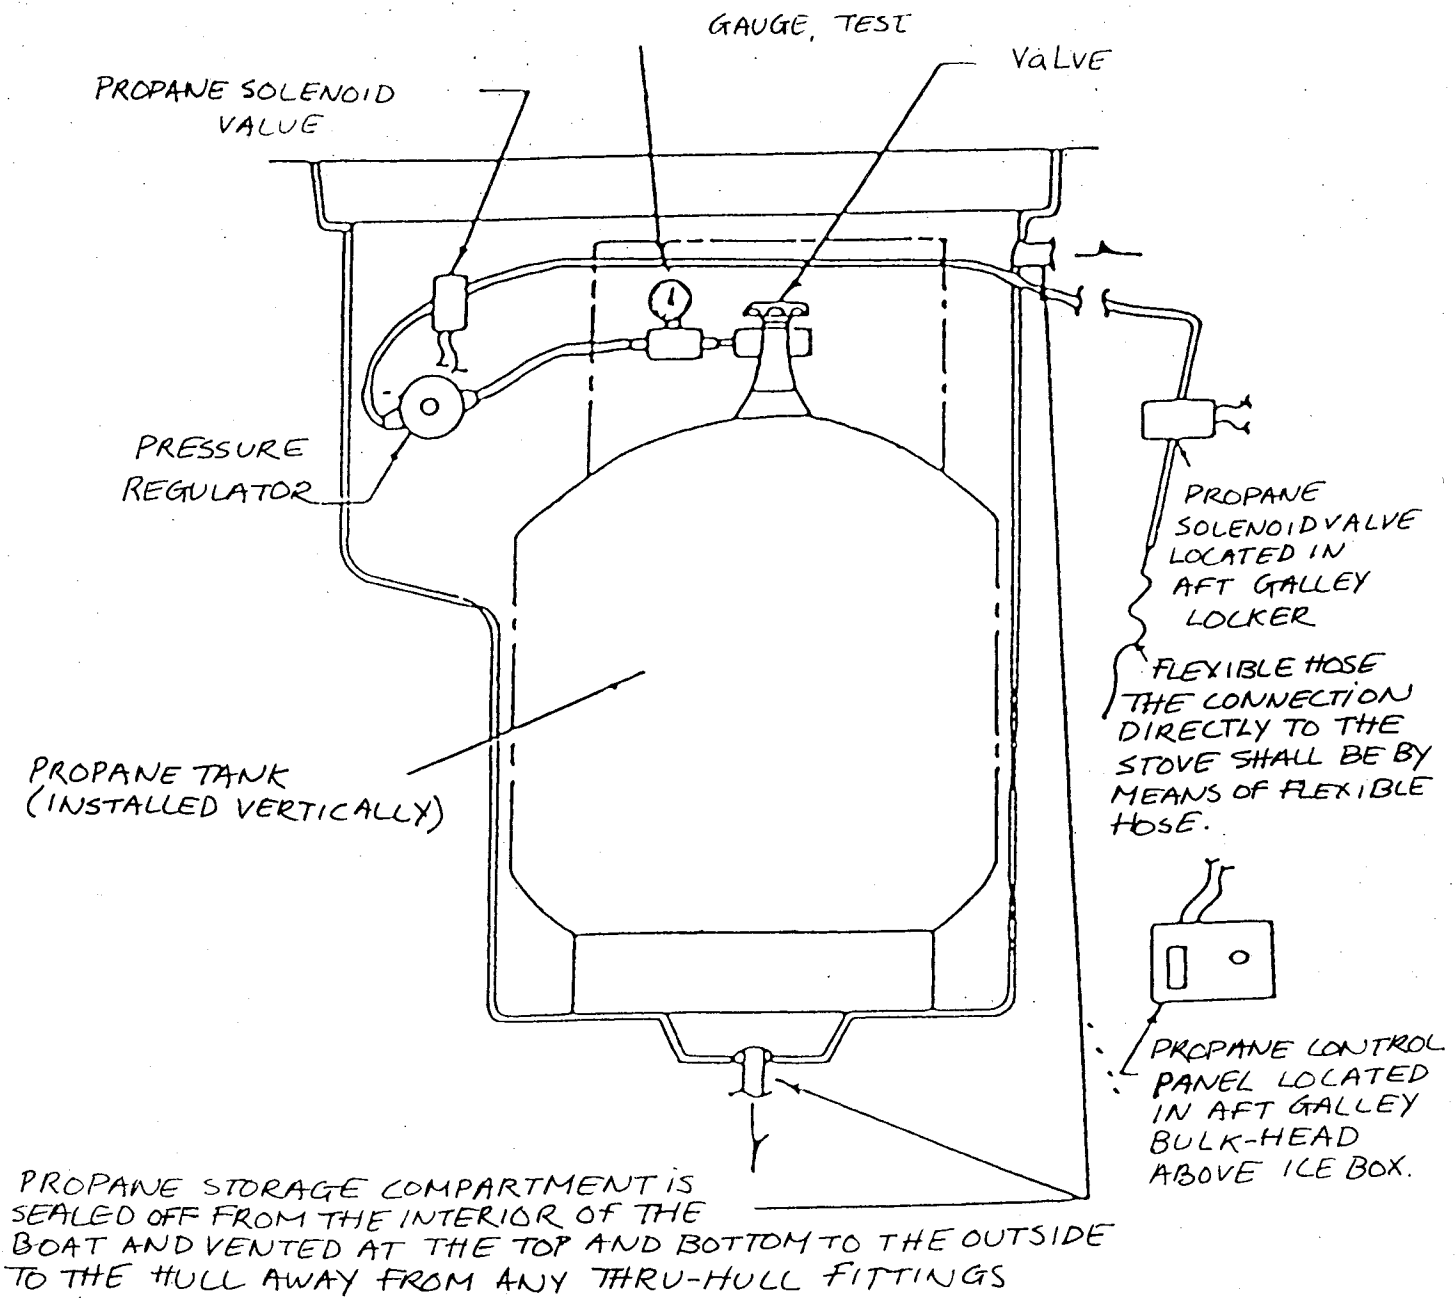 GAUGE, TEST
VALVE
PROPANE SOLENOID
VALUE
PRESSURE
REGULATOR
PROPANE
SOLENOID VALVE
LOCATED IN
AFT GALLEY
LOCKER
FLEXIBLE HOSE
THE CONNECTION
DIRECTLY TO THE
STOVE SHALL BE BY
MEANS OF FLEXIBLE
HOSE.
PROPANE TANK
(INSTALLED VERTICALLY)
PROPANE CONTROL
PANEL LOCATED
IN AFT GALLEY
BULK-HEAD
ABOVE ICE BOX.
PROPANE STORAGE COMPARTMENT IS
SEALED OFF FROM THE INTERIOR OF THE
BOAT AND VENTED AT THE TOP AND BOTTOM TO THE OUTSIDE
TO THE HULL AWAY FROM ANY THRU-HULL FITTINGS